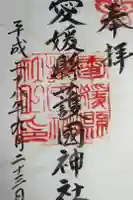 奉拝
愛媛縣護國神社
平成二十八年九月二十三日